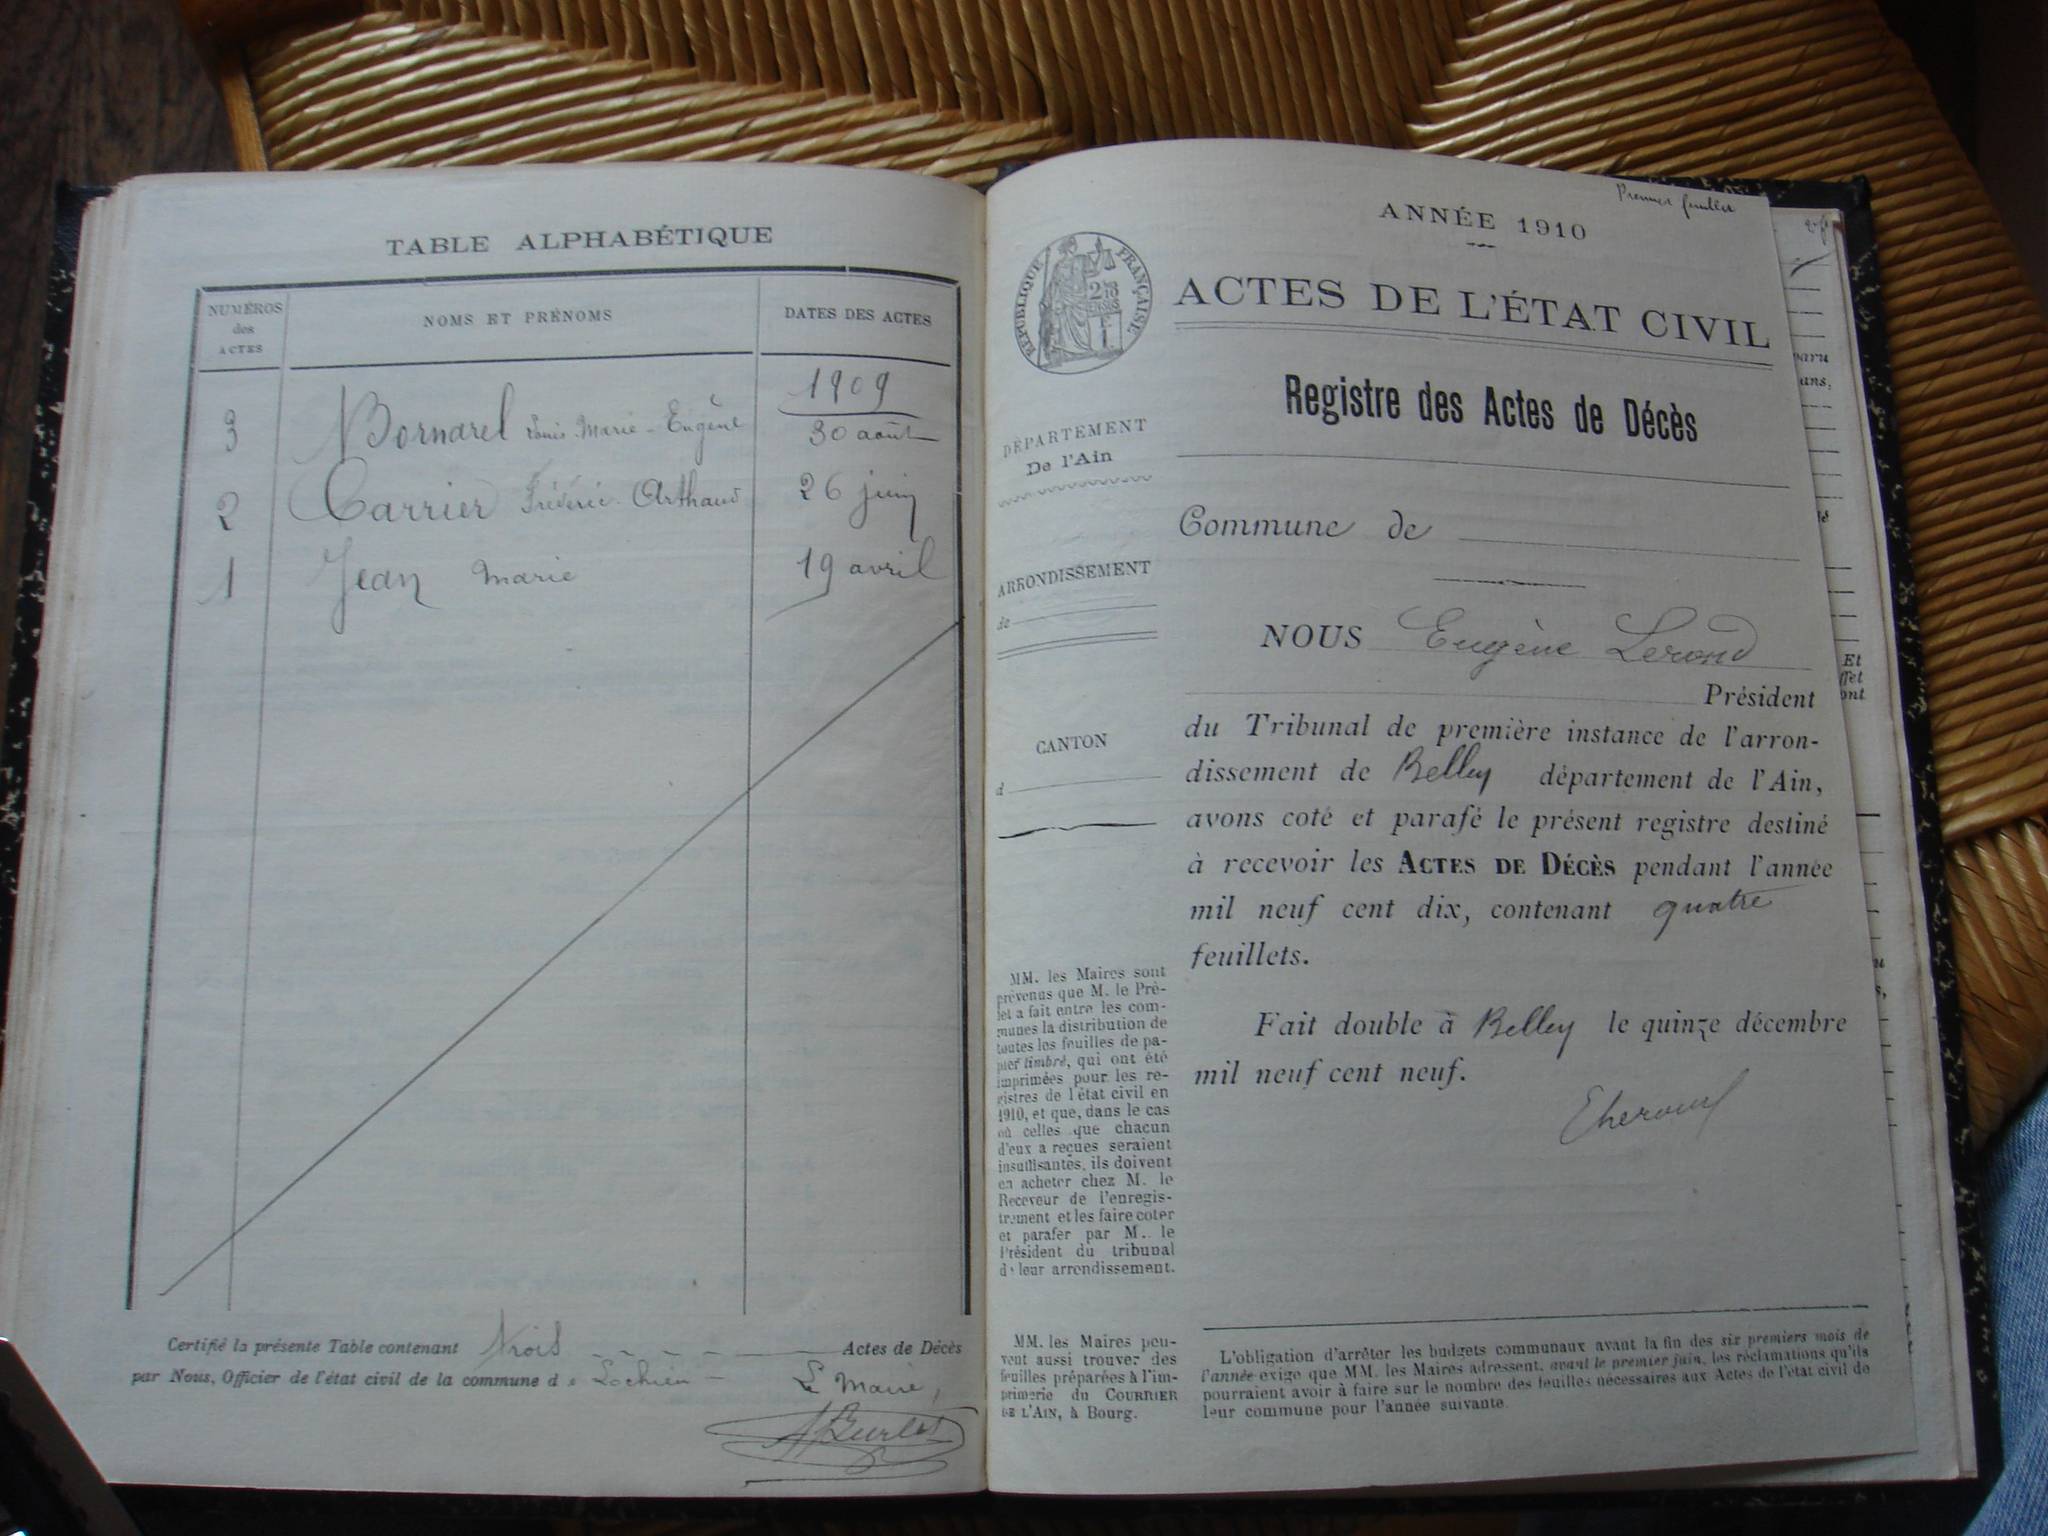 TABLE ALPHABÉTIQUE
NUMÉROS
des
ACTES
NOMS ET PRÉNOMS
DATES DES ACTES
1909
3 Bornarel Louis-Marie-Eugène 30 août
2 Carrier Frédéric-Arthaud 26 juin
1 Jean Marie 19 avril
Certifié la présente Table contenant trois Actes de Décès
par Nous, Officier de l'état civil de la commune de Lochieu
Le Maire,
Premier feuillet
ANNÉE 1910
RÉPUBLIQUE FRANÇAISE
ACTES DE L'ÉTAT CIVIL
Registre des Actes de Décès
DÉPARTEMENT
De l'Ain
ARRONDISSEMENT
de
CANTON
d
Commune de
NOUS Eugène Lerond
Président
du Tribunal de première instance de l'arron-
dissement de Belley département de l'Ain,
avons coté et parafé le présent registre destiné
à recevoir les ACTES DE DÉCÈS pendant l'année
mil neuf cent dix, contenant quatre
feuillets.
Fait double à Belley le quinze décembre
mil neuf cent neuf.
MM. les Maires sont
prévenus que M. le Pré-
fet a fait entre les com-
munes la distribution de
toutes les feuilles de pa-
pier timbré, qui ont été
imprimées pour les re-
gistres de l'état civil en
1910, et que, dans le cas
où celles que chacun
d'eux a reçues seraient
insuffisantes, ils doivent
en acheter chez M. le
Receveur de l'enregis-
trement et les faire coter
et parafer par M. le
Président du tribunal
de leur arrondissement.
MM. les Maires peu-
vent aussi trouver des
feuilles préparées à l'im-
primerie du COURRIER
DE L'AIN, à Bourg.
L'obligation d'arrêter les budgets communaux avant la fin des six premiers mois de
l'année exige que MM. les Maires adressent, avant le premier juin, les réclamations qu'ils
pourraient avoir à faire sur le nombre des feuilles nécessaires aux Actes de l'état civil de
leur commune pour l'année suivante.